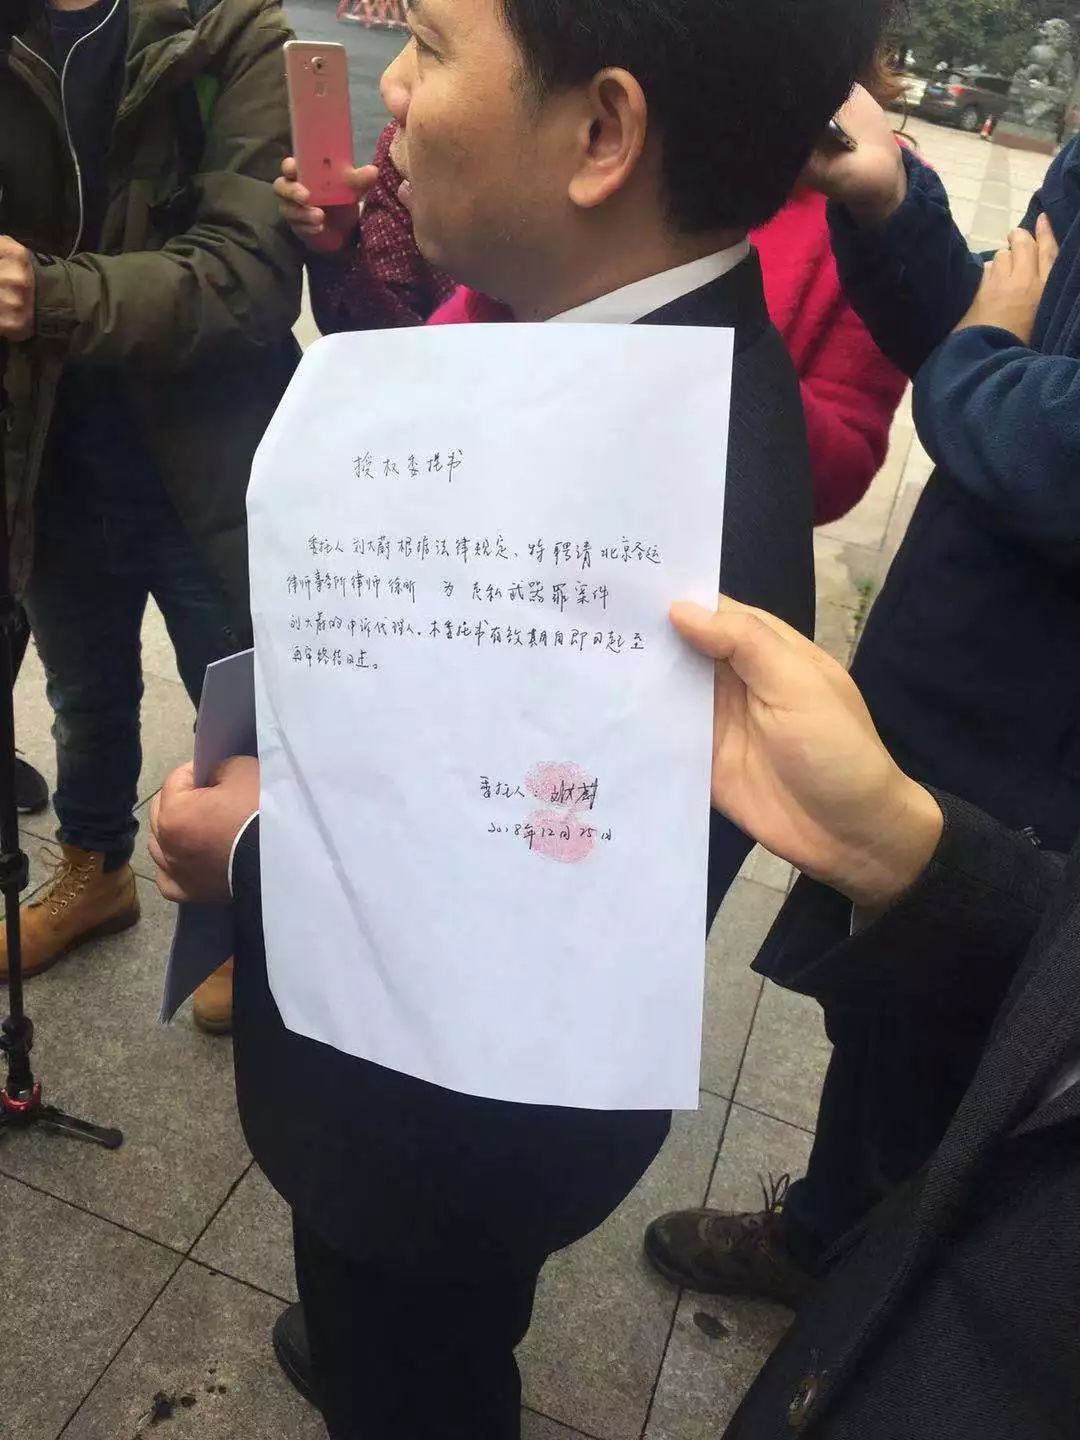 授权委托书
委托人刘大蔚根据法律规定、特聘请北京圣运
律师事务所律师徐昕 为 走私武器罪案件
刘大蔚的申诉代理人。本委托书有效期自即日起至
再审终结日止。
委托人：刘大蔚
2018年12月25日